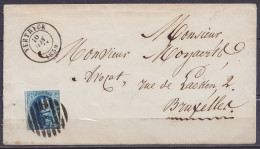 VERTRYCK
10
Monsieur
Monsieur Moyaerts
Avocat, rue de Laeken, 2
Bruxelles